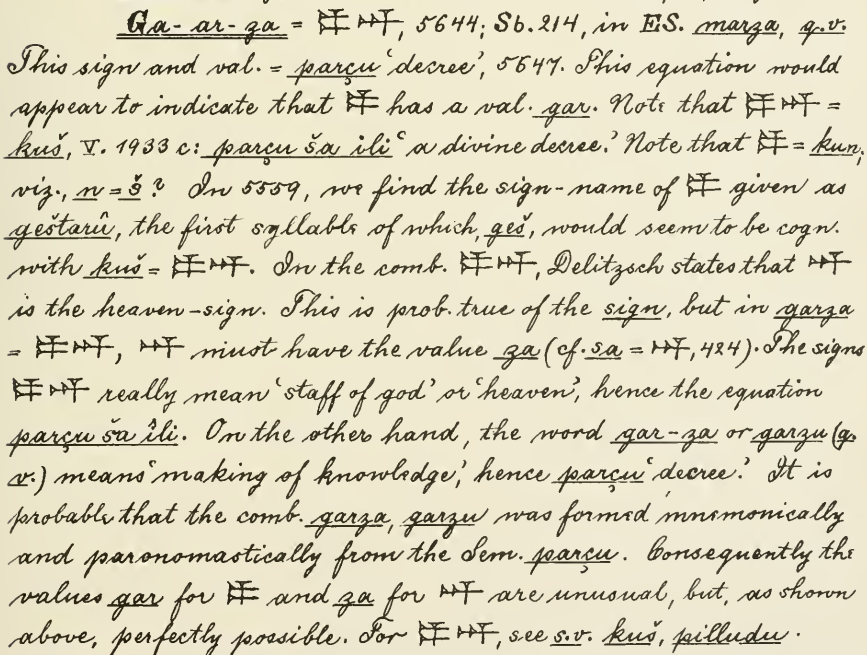 Ga-ar-za = 𒉺 𒀭, 5644; Sb. 214, in ES. marza, q.v.
This sign and val. = parçu ‘decree’, 5647. This equation would
appear to indicate that 𒉺 has a val. gar. Note that 𒉺 𒀭 =
kuš, V. 1933 c: parçu ša ili ‘a divine decree.’ Note that 𒉺 = kun,
viz., n = š? In 5559, we find the sign-name of 𒉺 given as
geštarû, the first syllable of which, geš, would seem to be cogn.
with kuš = 𒉺 𒀭. In the comb. 𒉺 𒀭, Delitzsch states that 𒀭
is the heaven-sign. This is prob. true of the sign, but in garza
= 𒉺 𒀭, 𒀭 must have the value za (cf. sa = 𒀭, 424). The signs
𒉺 𒀭 really mean ‘staff of god’ or ‘heaven’, hence the equation
parçu ša ili. On the other hand, the word gar-za or garzu (q.
v.) means ‘making of knowledge,’ hence parçu ‘decree.’ It is
probable that the comb. garza, garzu was formed mnemonically
and paronomastically from the Sem. parçu. Consequently the
values gar for 𒉺 and za for 𒀭 are unusual, but, as shown
above, perfectly possible. For 𒉺 𒀭, see s.v. kuš, pilludu.